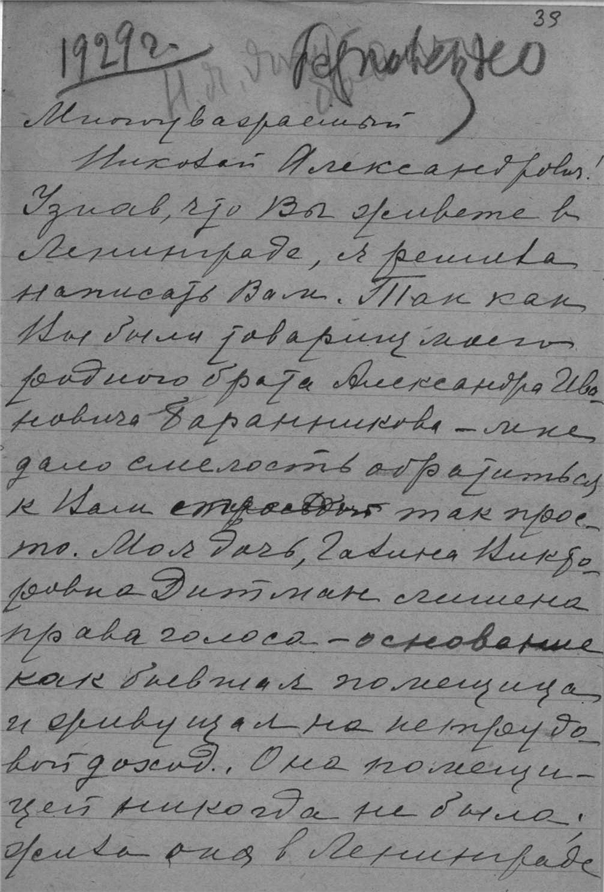 39
1929 г.
Многоуважаемый
Николай Александрович!
Узнав, что Вы живете в
Ленинграде, я решила
написать Вам. Так как
Вы были товарищ моего
родного брата Александра Ива-
новича Баранникова – мне
дало смелость обратиться
к Вам так прос-
то. Моя дочь, Галина Викто-
ровна Дитман лишена
права голоса – основание
как бывшая помещица
и живущая на нетрудо-
вой доход. Она помещи-
цей никогда не была,
жила она в Ленинграде